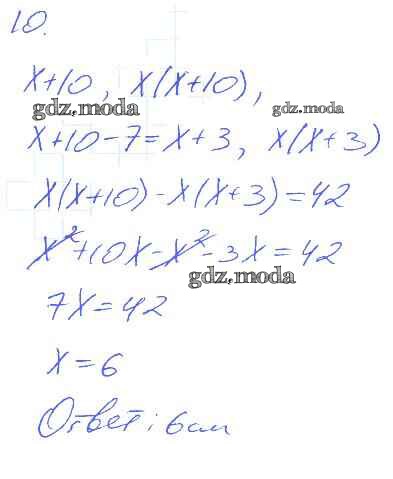 10.
x+10, x(x+10),
gdz.moda gdz.moda
x+10-7=x+3, x(x+3)
x(x+10)-x(x+3)=42
x²+10x-x²-3x=42
gdz.moda
7x=42
x=6
Ответ: 6см